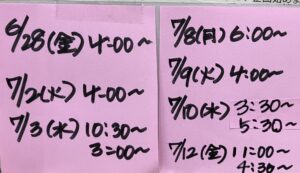 6/28(金) 4:00〜
7/2(火) 4:00〜
7/3(水) 10:30〜
3:00〜
7/8(月) 6:00〜
7/9(火) 4:00〜
7/10(水) 3:30〜
5:30〜
7/12(金) 11:00〜
4:30〜